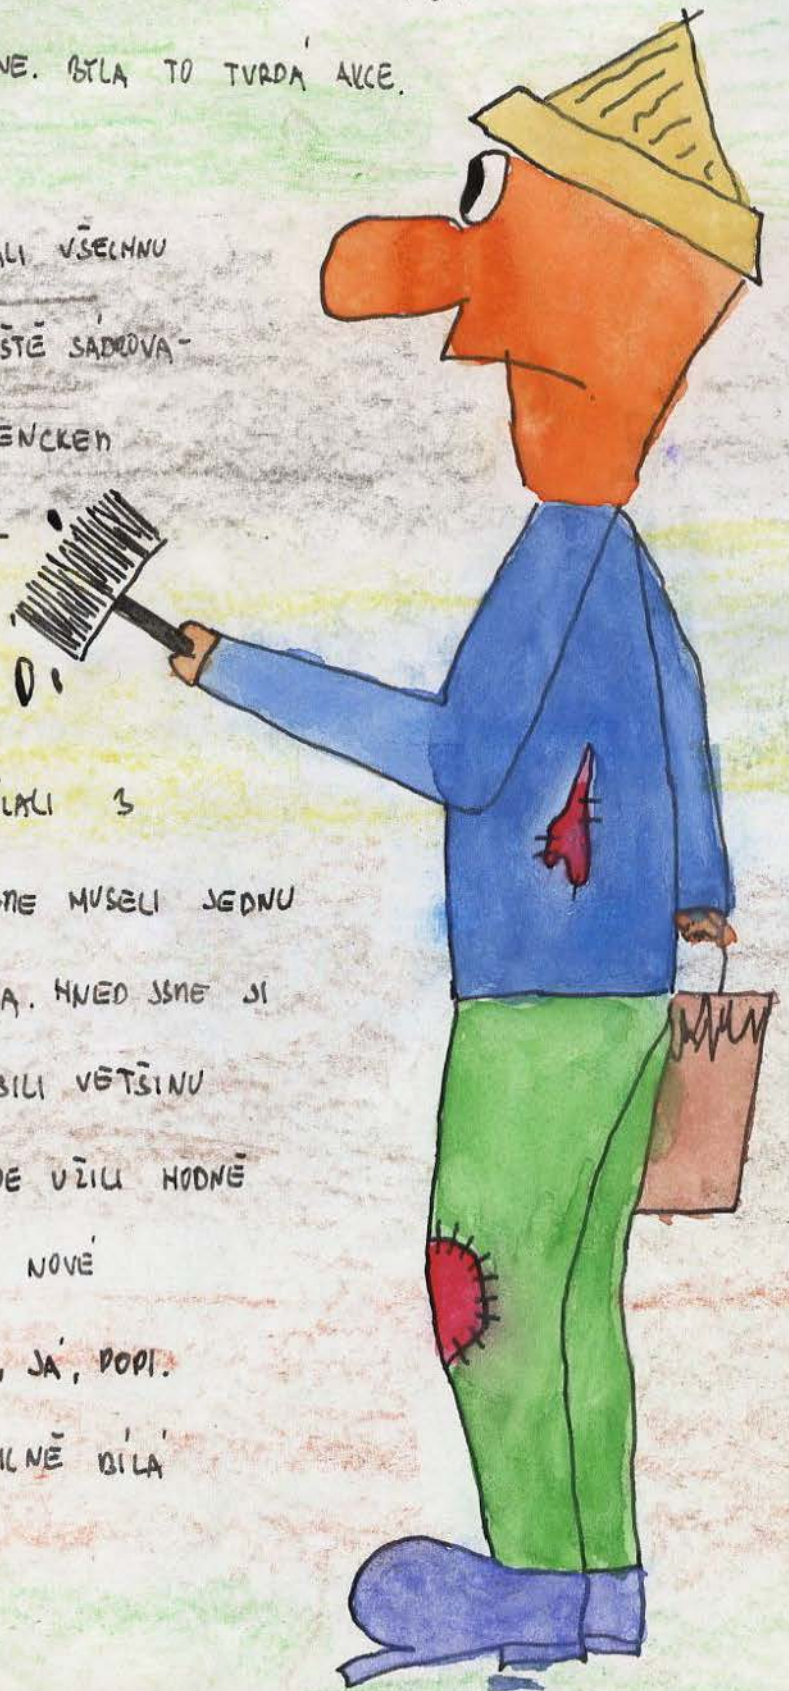 NE. BYLA TO TVRDÁ AKCE.
ALI VŠECHNU
ŠTĚ SÁDROVA-
ENCKEM
LALI 3
SME MUSELI JEDNU
A. HNED JSME JI
BILI VĚTŠINU
DE UŽILI HODNĚ
NOVÉ
, JÁ, POPI.
ILNĚ BÍLÁ